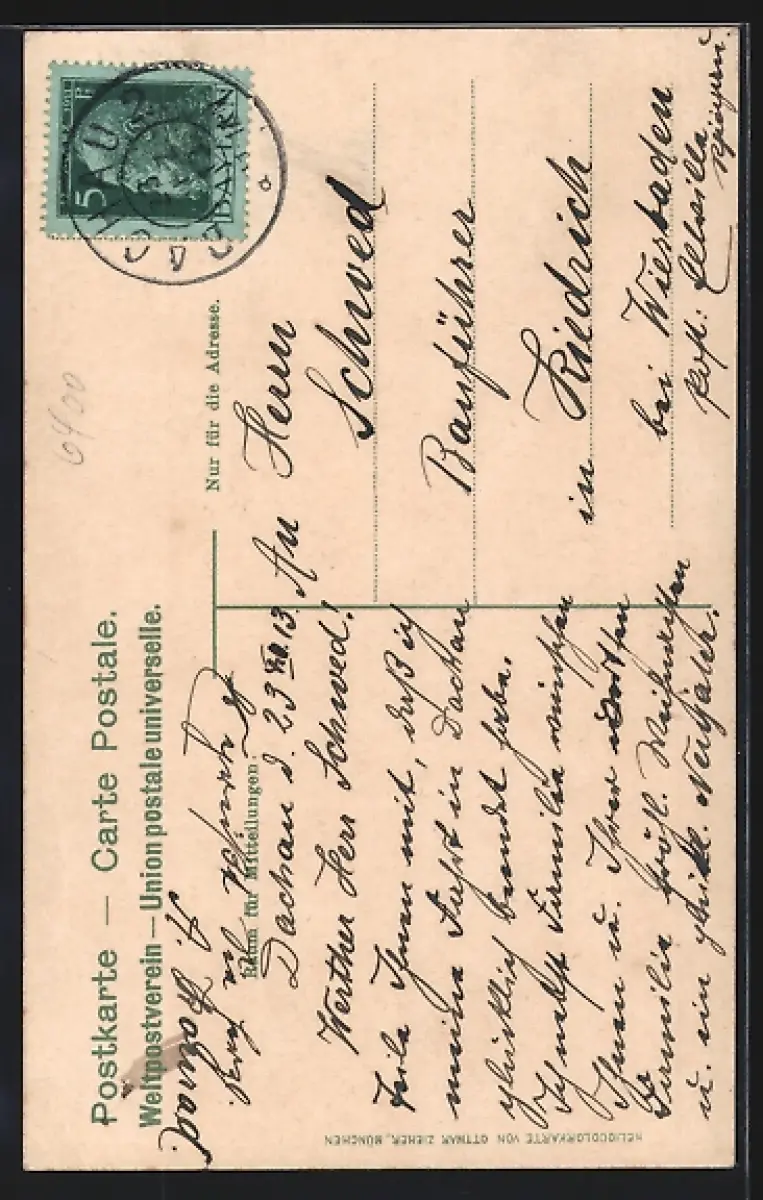 Postkarte — Carte Postale.
Weltpostverein — Union postale universelle.
Nur für die Adresse.
Raum für Mitteilungen.
5
DACHAU 2
BAYERN
6400
Dachau d. 23 XII. 13.
Werther Herr Schwed!
Teile Ihnen mit, daß ich
meine Fahrt in Dachau
glücklich beendet habe.
Ich nebst Familie wünschen
Ihnen u. Ihrer werten
Familie fröhl. Weihnachten
u. ein glückl. Neujahr.
An Herrn
Schwed
Bauführer
in Kiedrich
bei Wiesbaden
HELIOCOLORKARTE VON OTTMAR ZIEHER, MÜNCHEN